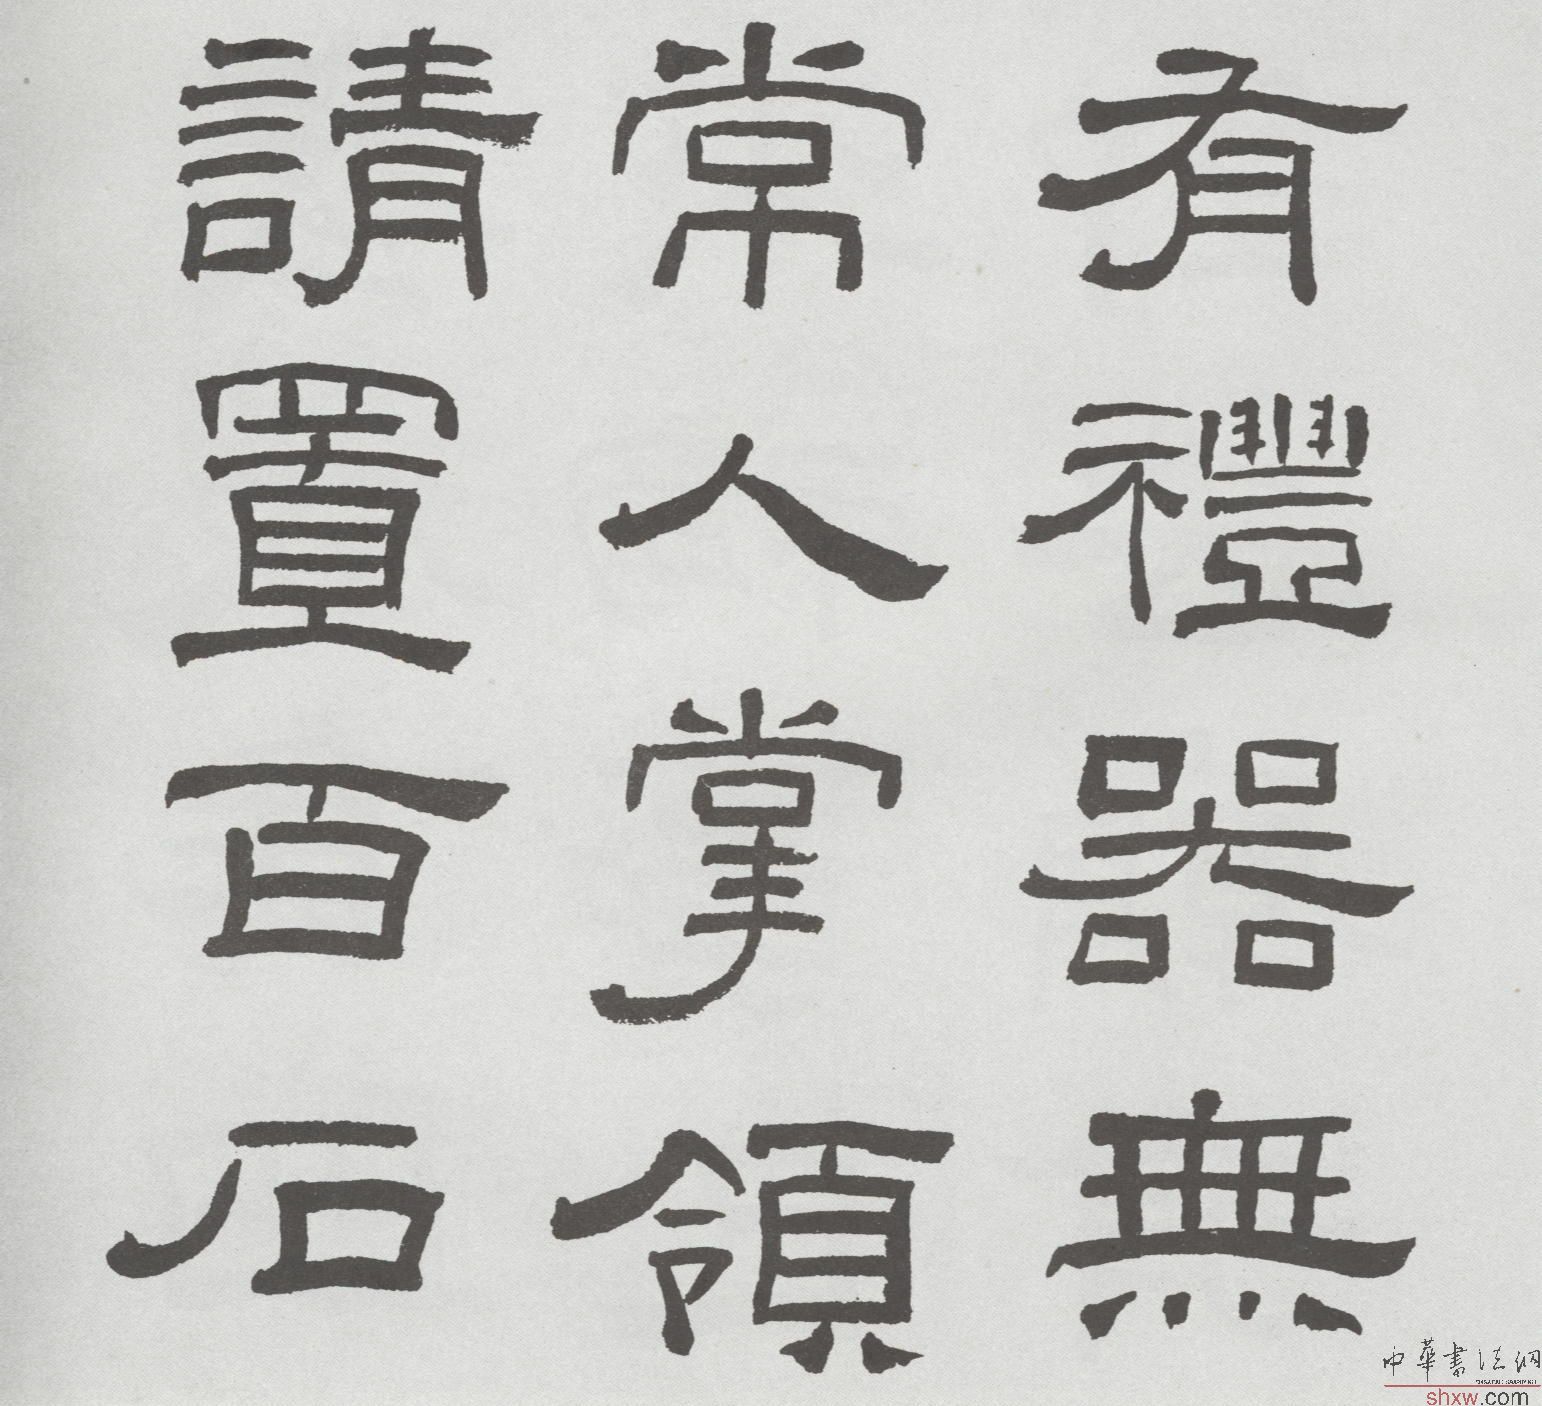 有禮器無
常人掌領
請置百石
中華書法網
shxw.com